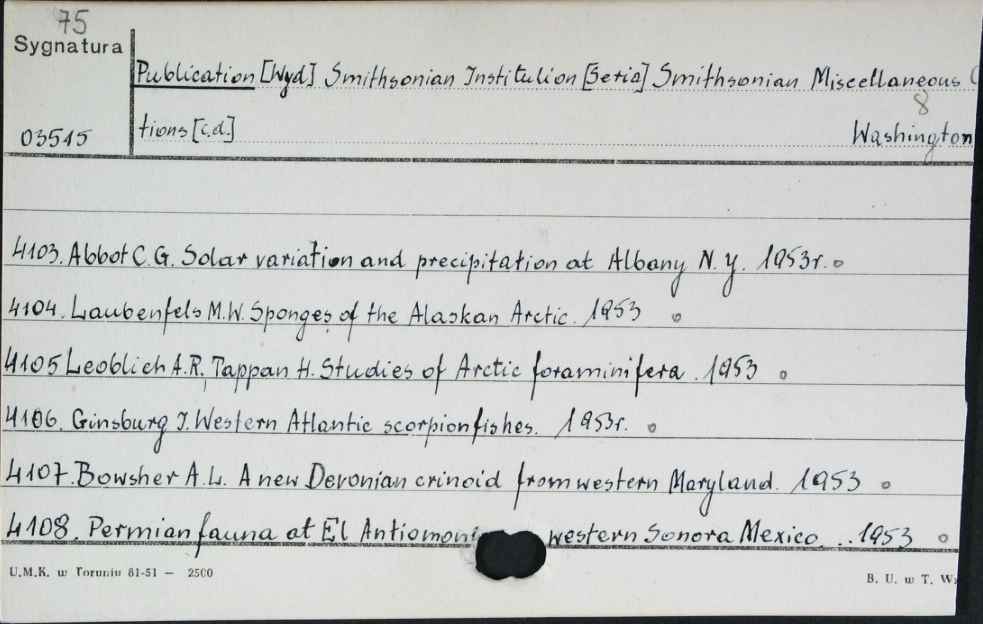 75
Sygnatura
Publication [Wyd] Smithsonian Institution [Seria] Smithsonian Miscellaneous C
8
03515 tions [c.d.] Washington
4103. Abbot C. G. Solar variation and precipitation at Albany N. Y. 1953r.
4104. Laubenfels M.W. Sponges of the Alaskan Arctic. 1953
4105 Leoblich A.R, Tappan H. Studies of Arctic foraminifera. 1953
4106. Ginsburg I. Western Atlantic scorpionfishes. 1953r.
4107. Bowsher A.L. A new Devonian crinoid from western Maryland. 1953
4108. Permian fauna at El Antiomon western Sonora Mexico. 1953
U.M.K. w Toruniu 61-51 — 2500 B. U. w T. W